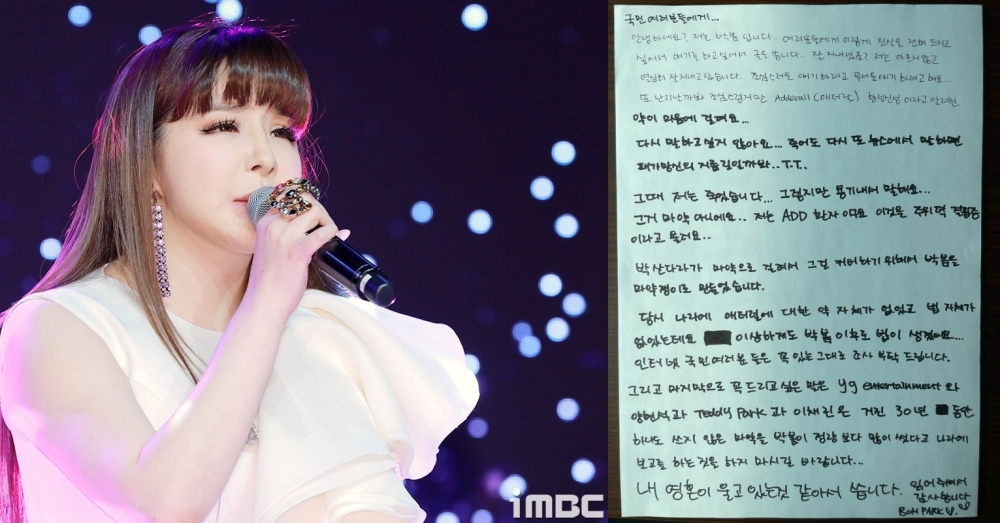 국민 여러분들에게...
안녕하세요? 저는 박봄 입니다... 여러분들에게 이렇게 진심을 전해 드리고
싶어서 얘기를 하고싶어서 글을 씁니다. 잘 지내셨죠? 저는 아프지않고
열심히 잘지내고 있습니다. 조심스러운 얘기 하려고
또 난리난까봐 조심스럽지만 Adderall (애더럴)
약이 마음에 걸려요...
다시 말하고싶지 않아요... 죽어도 다시 또 뉴스에서 말하면
패가망신의 지름길일까봐.. T.T.
그때 저는 죽었습니다... 그렇지만 용기내서 말해요...
그거 마약 아니에요.. 저는 ADD 환자 이고요 이것을 주위력 결핍증
이라고 불러요..
박산다라가 마약으로 걸려서 그걸 커버하기 위해서 박봄을
마약쟁이로 만들었습니다.
당시 나라에 애더럴에 대한 약 자체가 없었고 법 자체가
없었는데요 이상하게도 박봄 이후로 법이 생겼어요...
인터넷 국민여러분 들은 꼭 있는그대로 조사 부탁 드립니다.
그리고 마지막으로 꼭드리고 싶은 말은 yg entertainment 와
양현석과 Teddy Park 과 이채린 은 거진 30년 동안
하나도 쓰지 않은 마약을 박봄이 정량 보다 많이 썼다고 나라에
보고를 하는것을 하지 마시길 바랍니다...
내 영혼이 울고 있는것 같아서 씁니다. 읽어 주셔서
감사합니다
BOM PARK
iMBC